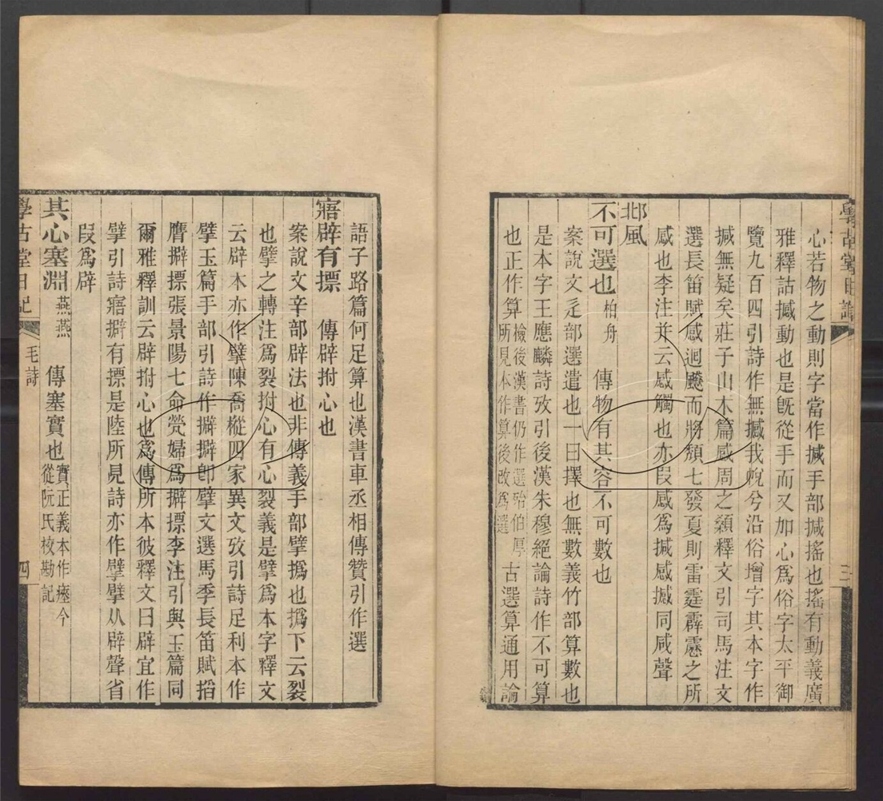 心若物之動則字當作搣手部搣搖也搖有動義廣
雅釋詁撼動也是旣從手而又加心爲俗字太平御
覽九百四引詩作無撼我帨兮沿俗增字其本字作
搣無疑矣莊子山木篇感周之顙釋文引司馬注文
選長笛賦感迴飈而將頹七發夏則雷霆霹靂之所
感也李注并云感觸也亦叚感爲搣感撼同咸聲
邶風
不可選也柏舟 傳物有其容不可數也
案說文辵部選遣也一曰擇也無數義竹部算數也
是本字王應麟詩攷引後漢朱穆絕論詩作不可算
也正作算檢後漢書仍作選殆伯厚所見本作算後改爲選古選算通用論
學古堂日記 毛詩 四
語子路篇何足算也漢書車丞相傳贊引作選
寤辟有摽 傳辟拊心也
案說文辛部辟法也非傳義手部擘撝也撝下云裂
也擘之轉注爲裂拊心有心裂義是擘爲本字釋文
云辟本亦作擘陳喬樅四家異文攷引詩足利本作
擘玉篇手部引詩作擗擗卽擘文選馬季長笛賦搯
膺擗摽張景陽七命煢嫠爲擗摽李注引與玉篇同
爾雅釋訓云辟拊心也爲傳所本彼釋文曰辟宜作
擘引詩寤擗有摽是陸所見詩亦作擘擘从辟聲省
叚爲辟
其心塞淵燕燕 傳塞實也實正義本作瘞今從阮氏校勘記